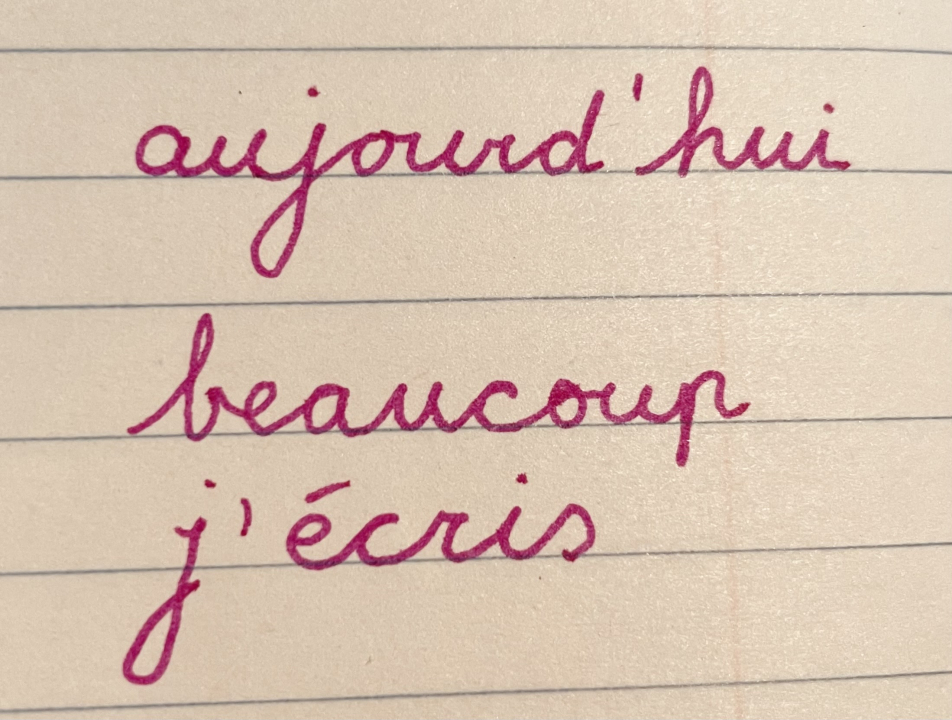 aujourd'hui
beaucoup
j'écris